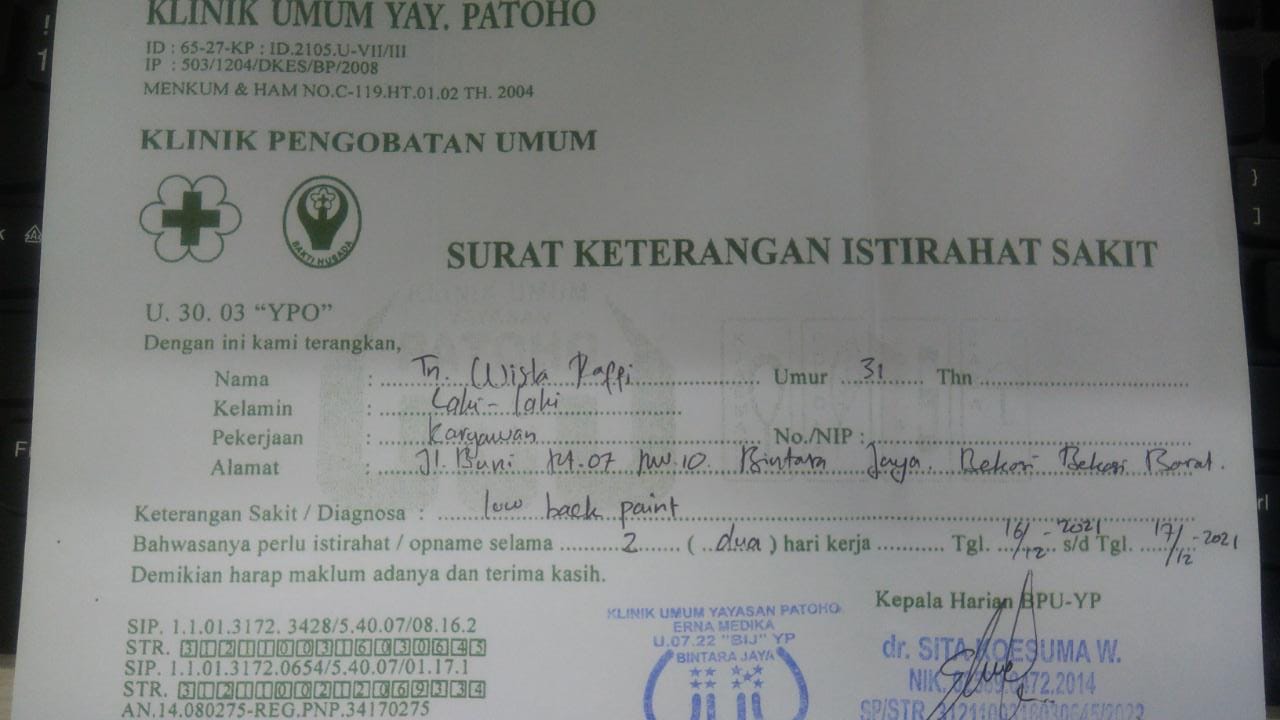 KLINIK UMUM YAY. PATOHO
ID : 65-27-KP : ID.2105.U-VII/III
IP : 503/1204/DKES/BP/2008
MENKUM & HAM NO.C-119.HT.01.02 TH. 2004
KLINIK PENGOBATAN UMUM
BAKTI HUSADA
SURAT KETERANGAN ISTIRAHAT SAKIT
U. 30. 03 “YPO”
Dengan ini kami terangkan,
Nama : Tn. Wisla Raffi Umur 31 Thn
Kelamin : Laki-laki
Pekerjaan : Karyawan No./NIP :
Alamat : Jl. Buni Rt.07 Rw.10. Bintara Jaya. Bekasi Bekasi Barat.
Keterangan Sakit / Diagnosa : low back paint
Bahwasanya perlu istirahat / opname selama 2 ( dua ) hari kerja Tgl. 16/12-2021 s/d Tgl. 17/12-2021
Demikian harap maklum adanya dan terima kasih.
Kepala Harian BPU-YP
SIP. 1.1.01.3172. 3428/5.40.07/08.16.2
STR. 3121100316030645
SIP. 1.1.01.3172.0654/5.40.07/01.17.1
STR. 3121100212069334
AN.14.080275-REG.PNP.34170275
KLINIK UMUM YAYASAN PATOHO
ERNA MEDIKA
U.07.22 "BIJ" YP
BINTARA JAYA
dr. SITA KOESUMA W.
NIK.
SP/STR.